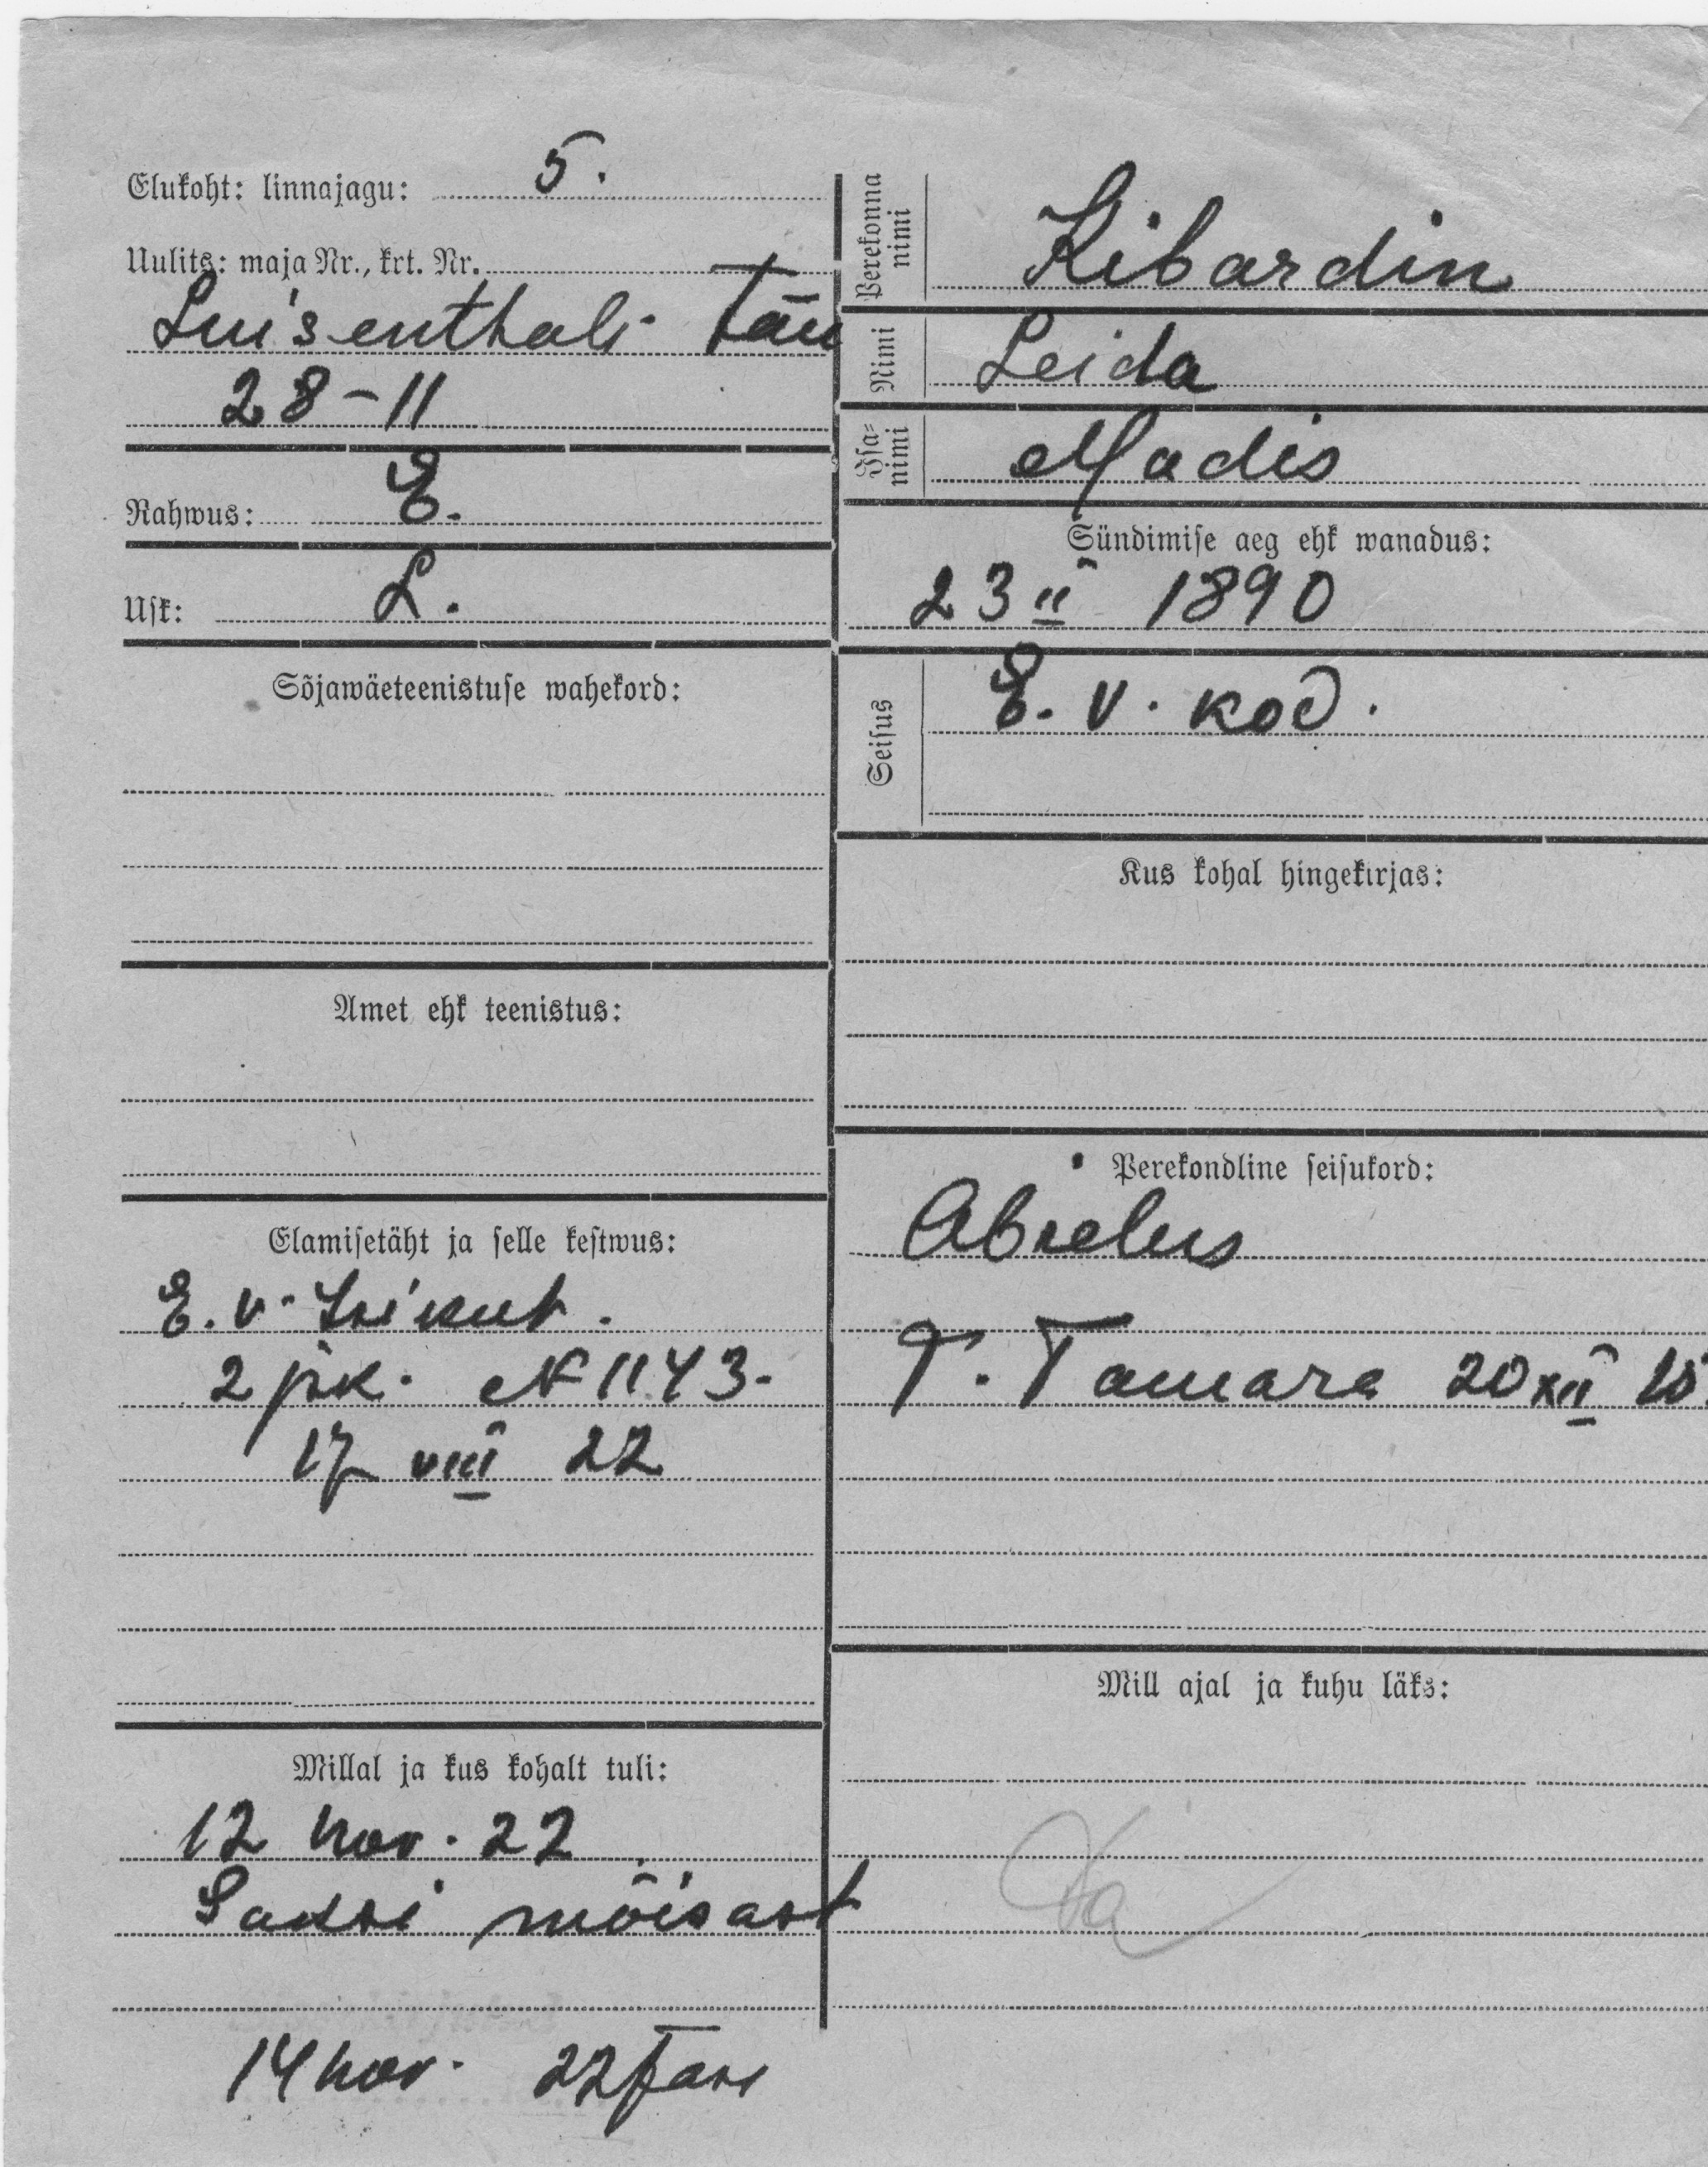 Elukoht: linnajagu: 5.
Uulits: maja Nr., krt. Nr.
Luisenthali tän
28-11
Rahwus: E.
Usk: L.
Sõjawäeteenistuse wahekord:
Amet ehk teenistus:
Elamisetäht ja selle kestwus:
E. V.
2 jsk. N 1143.
17 VIII 22
Millal ja kus kohalt tuli:
12 nov. 22
Saksi mõisast
14 nov. 22
Perekonna nimi
Kibardin
Nimi
Leida
Isa-nimi
Madis
Sündimise aeg ehk wanadus:
23 II 1890
Seisus
E. V. kod.
Kus kohal hingekirjas:
Perekondline seisukord:
Abielus
T. Tamara 20 XII
Mill ajal ja kuhu läks: